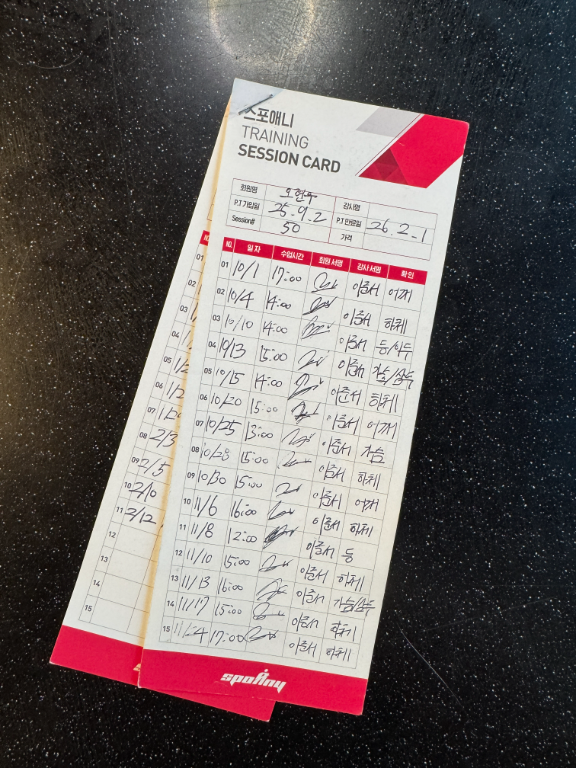 스포애니
TRAINING
SESSION CARD
회원명 오현주 강사명
P.T 가입일 25.9.2 P.T 만료일 26.2.1
Session# 50 가격
NO. 일 자 수업시간 회원 서명 강사 서명 확 인
01 10/1 17:00 이준서 어깨
02 10/4 14:00 이준서 하체
03 10/10 14:00 이준서 등/이두
04 10/13 15:00 이준서 가슴/삼두
05 10/15 14:00 이준서 하체
06 10/20 15:00 이준서 어깨
07 10/25 13:00 이준서 가슴
08 10/28 15:00 이준서 하체
09 10/30 15:00 이준서 어깨
10 11/6 16:00 이준서 하체
11 11/8 12:00 이준서 등
12 11/10 15:00 이준서 하체
13 11/13 16:00 이준서 가슴/삼두
14 11/17 15:00 이준서 하체
15 11/24 17:00 이준서 하체
spoany
NO.
01
02
03
04
05
06
07
08 2/3
09 2/5
10 2/10
11 2/12
12
13
14
15